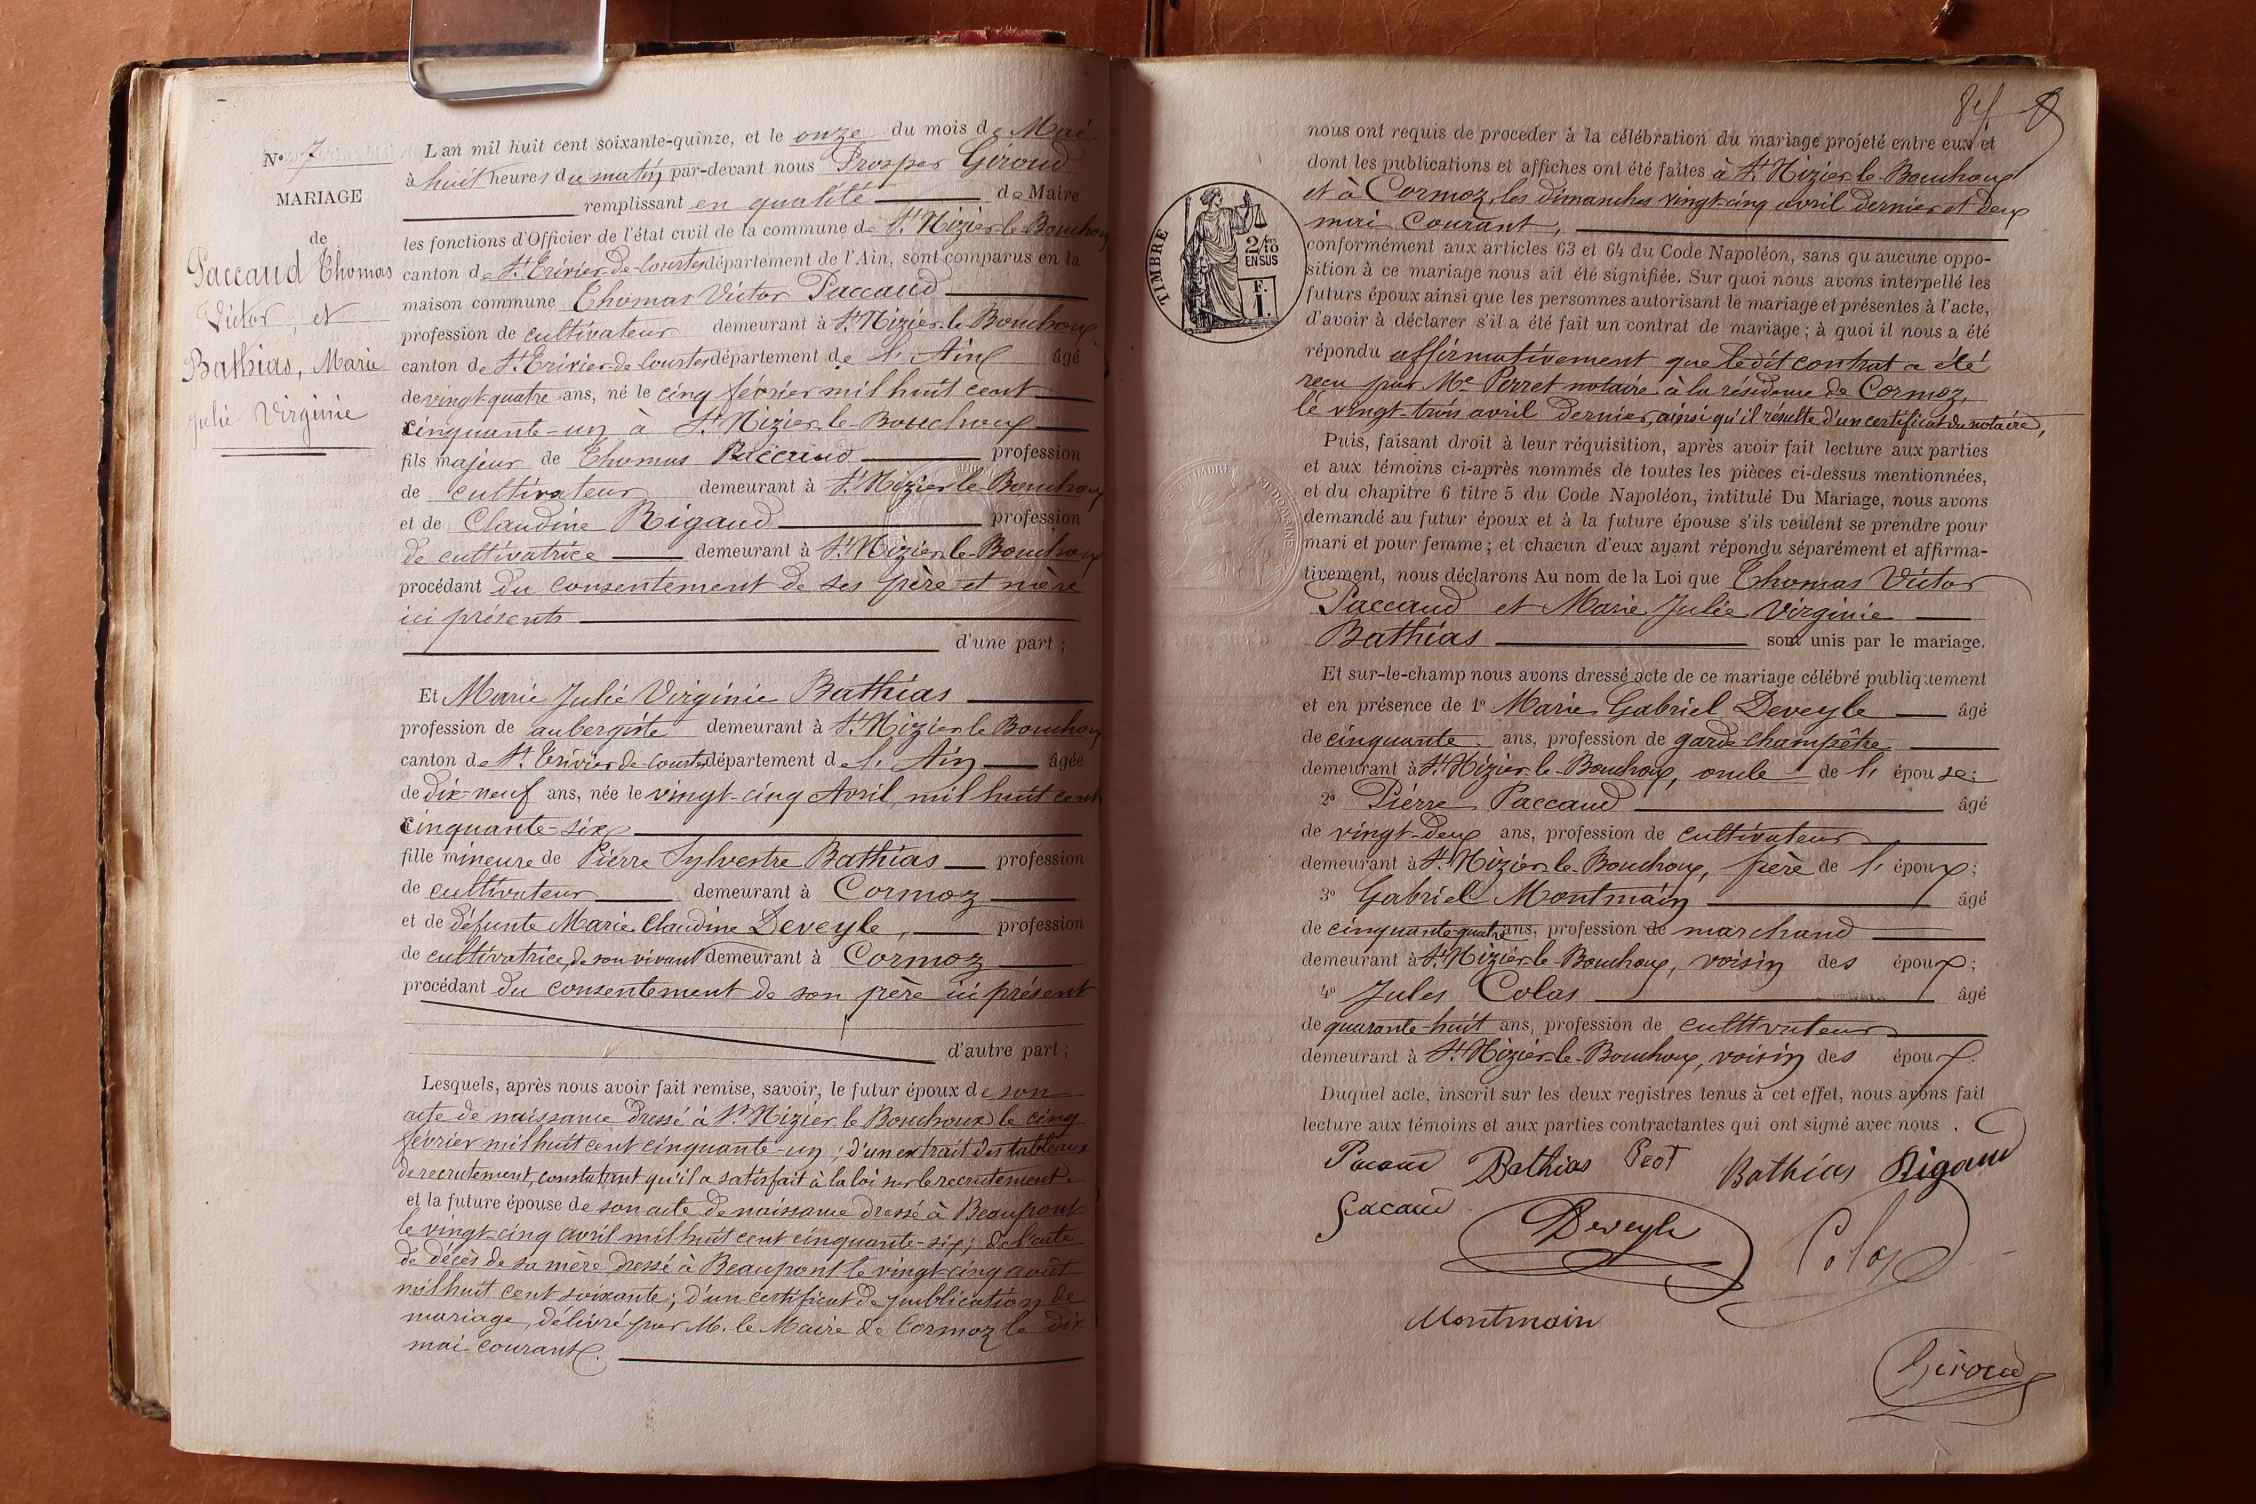 N° 7
MARIAGE
de
Paccaud Thomas
Victor, et
Bathias, Marie
Julie Virginie
L'an mil huit cent soixante-quinze, et le onze du mois de Mai
à huit heures du matin par-devant nous Prosper Giroud
remplissant en qualité de Maire
les fonctions d'Officier de l'état civil de la commune de St Nizier-le-Bouchoux
canton de St Trivier-de-Courtes département de l'Ain, sont comparus en la
maison commune Thomas Victor Paccaud
profession de cultivateur demeurant à St Nizier-le-Bouchoux
canton de St Trivier-de-Courtes département de l'Ain âgé
de vingt-quatre ans, né le cinq février mil huit cent
cinquante-un à St Nizier-le-Bouchoux
fils majeur de Thomas Paccaud profession
de cultivateur demeurant à St Nizier le Bouchoux
et de Claudine Rigaud profession
de cultivatrice demeurant à St Nizier-le-Bouchoux
procédant du consentement de ses père et mère
ici présents
d'une part ;
Et Marie Julie Virginie Bathias
profession de aubergiste demeurant à St Nizier le Bouchoux
canton de St Trivier de Courtes département de l'Ain âgée
de dix-neuf ans, née le vingt-cinq Avril mil huit cent
cinquante-six
fille mineure de Pierre Sylvestre Bathias profession
de cultivateur demeurant à Cormoz
et de défunte Marie Claudine Deveyle, profession
de cultivatrice, de son vivant demeurant à Cormoz
procédant du consentement de son père ici présent
d'autre part ;
Lesquels, après nous avoir fait remise, savoir, le futur époux de son
acte de naissance dressé à St Nizier le Bouchoux le cinq
février mil huit cent cinquante-un ; d'un extrait des tableaux
de recrutement, constatant qu'il a satisfait à la loi sur le recrutement.
et la future épouse de son acte de naissance dressé à Beaupont
le vingt-cinq avril mil huit cent cinquante-six ; de l'acte
de décès de sa mère dressé à Beaupont le vingt-cinq août
mil huit cent soixante ; d'un certificat de publication de
mariage, délivré par M. le Maire de Cormoz le dix
mai courant.
nous ont requis de procéder à la célébration du mariage projeté entre eux et
dont les publications et affiches ont été faites à St Nizier-le-Bouchoux
et à Cormoz, les dimanches vingt-cinq avril dernier et deux
mai courant,
TIMBRE
2/10 EN SUS
F. 1.
conformément aux articles 63 et 64 du Code Napoléon, sans qu'aucune oppo-
sition à ce mariage nous ait été signifiée. Sur quoi nous avons interpellé les
futurs époux ainsi que les personnes autorisant le mariage et présentes à l'acte,
d'avoir à déclarer s'il a été fait un contrat de mariage ; à quoi il nous a été
répondu affirmativement que ledit contrat a été
reçu par Me Perret notaire à la résidence de Cormoz,
le vingt-trois avril dernier, ainsi qu'il résulte d'un certificat du notaire,
Puis, faisant droit à leur réquisition, après avoir fait lecture aux parties
et aux témoins ci-après nommés de toutes les pièces ci-dessus mentionnées,
et du chapitre 6 titre 5 du Code Napoléon, intitulé Du Mariage, nous avons
demandé au futur époux et à la future épouse s'ils veulent se prendre pour
mari et pour femme ; et chacun d'eux ayant répondu séparément et affirma-
tivement, nous déclarons Au nom de la Loi que Thomas Victor
Paccaud et Marie Julie Virginie
Bathias sont unis par le mariage.
Et sur-le-champ nous avons dressé acte de ce mariage célébré publiquement
et en présence de 1° Marie Gabriel Deveyle âgé
de cinquante ans, profession de garde champêtre
demeurant à St Nizier-le-Bouchoux, oncle de l'épouse ;
2° Pierre Paccaud âgé
de vingt-deux ans, profession de cultivateur
demeurant à St Nizier-le-Bouchoux, frère de l'époux ;
3° Gabriel Montmain âgé
de cinquante quatre ans, profession de marchand
demeurant à St Nizier-le-Bouchoux, voisin des époux ;
4° Jules Colas âgé
de quarante-huit ans, profession de cultivateur
demeurant à St Nizier-le-Bouchoux, voisin des époux.
Duquel acte, inscrit sur les deux registres tenus à cet effet, nous avons fait
lecture aux témoins et aux parties contractantes qui ont signé avec nous .
Pacaud Bathias Bathias Rigaud
Pacaud Deveyle Colas
Montmain
Giroud